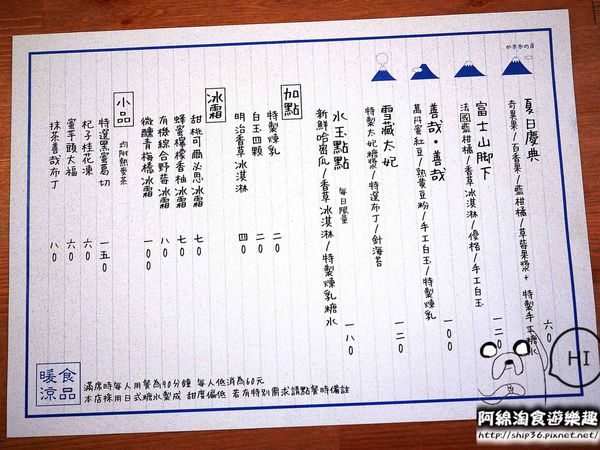 かき氷の店
夏日慶典
奇異果/百香果/藍柑橘/草莓果漿+特製手工糖水 六0
富士山腳下
法國藍柑橘/香草冰淇淋/優格/手工白玉 一二0
善哉·善哉
萬丹蜜紅豆/熟黃豆粉/手工白玉/特製煉乳 一00
雪藏太妃
特製太妃糖漿/特選布丁/針海苔 一二0
水玉點點 每日限量
新鮮哈密瓜/香草冰淇淋/特製煉乳糖水 一八0
加點
特製煉乳 二0
白玉四顆 二0
明治香草冰淇淋 四0
冰霜
甜桃可爾必思冰霜 七0
蜂蜜檸檬香柚冰霜 七0
有機綜合野莓冰霜 八0
微醺青梅橋冰霜 一00
小品 均附熱煎茶
特選黑蜜葛切 一五0
杞子桂花凍 六0
蜜芋頭大福 六0
抹茶善哉布丁 八0
暖食涼品
滿席時每人用餐為90分鐘 每人低消為60元
本店採用日式糖水製成 甜度偏低 若有特別需求請點餐時備註
HI
阿綿淘食遊樂趣
http://ship36.pixnet.net/